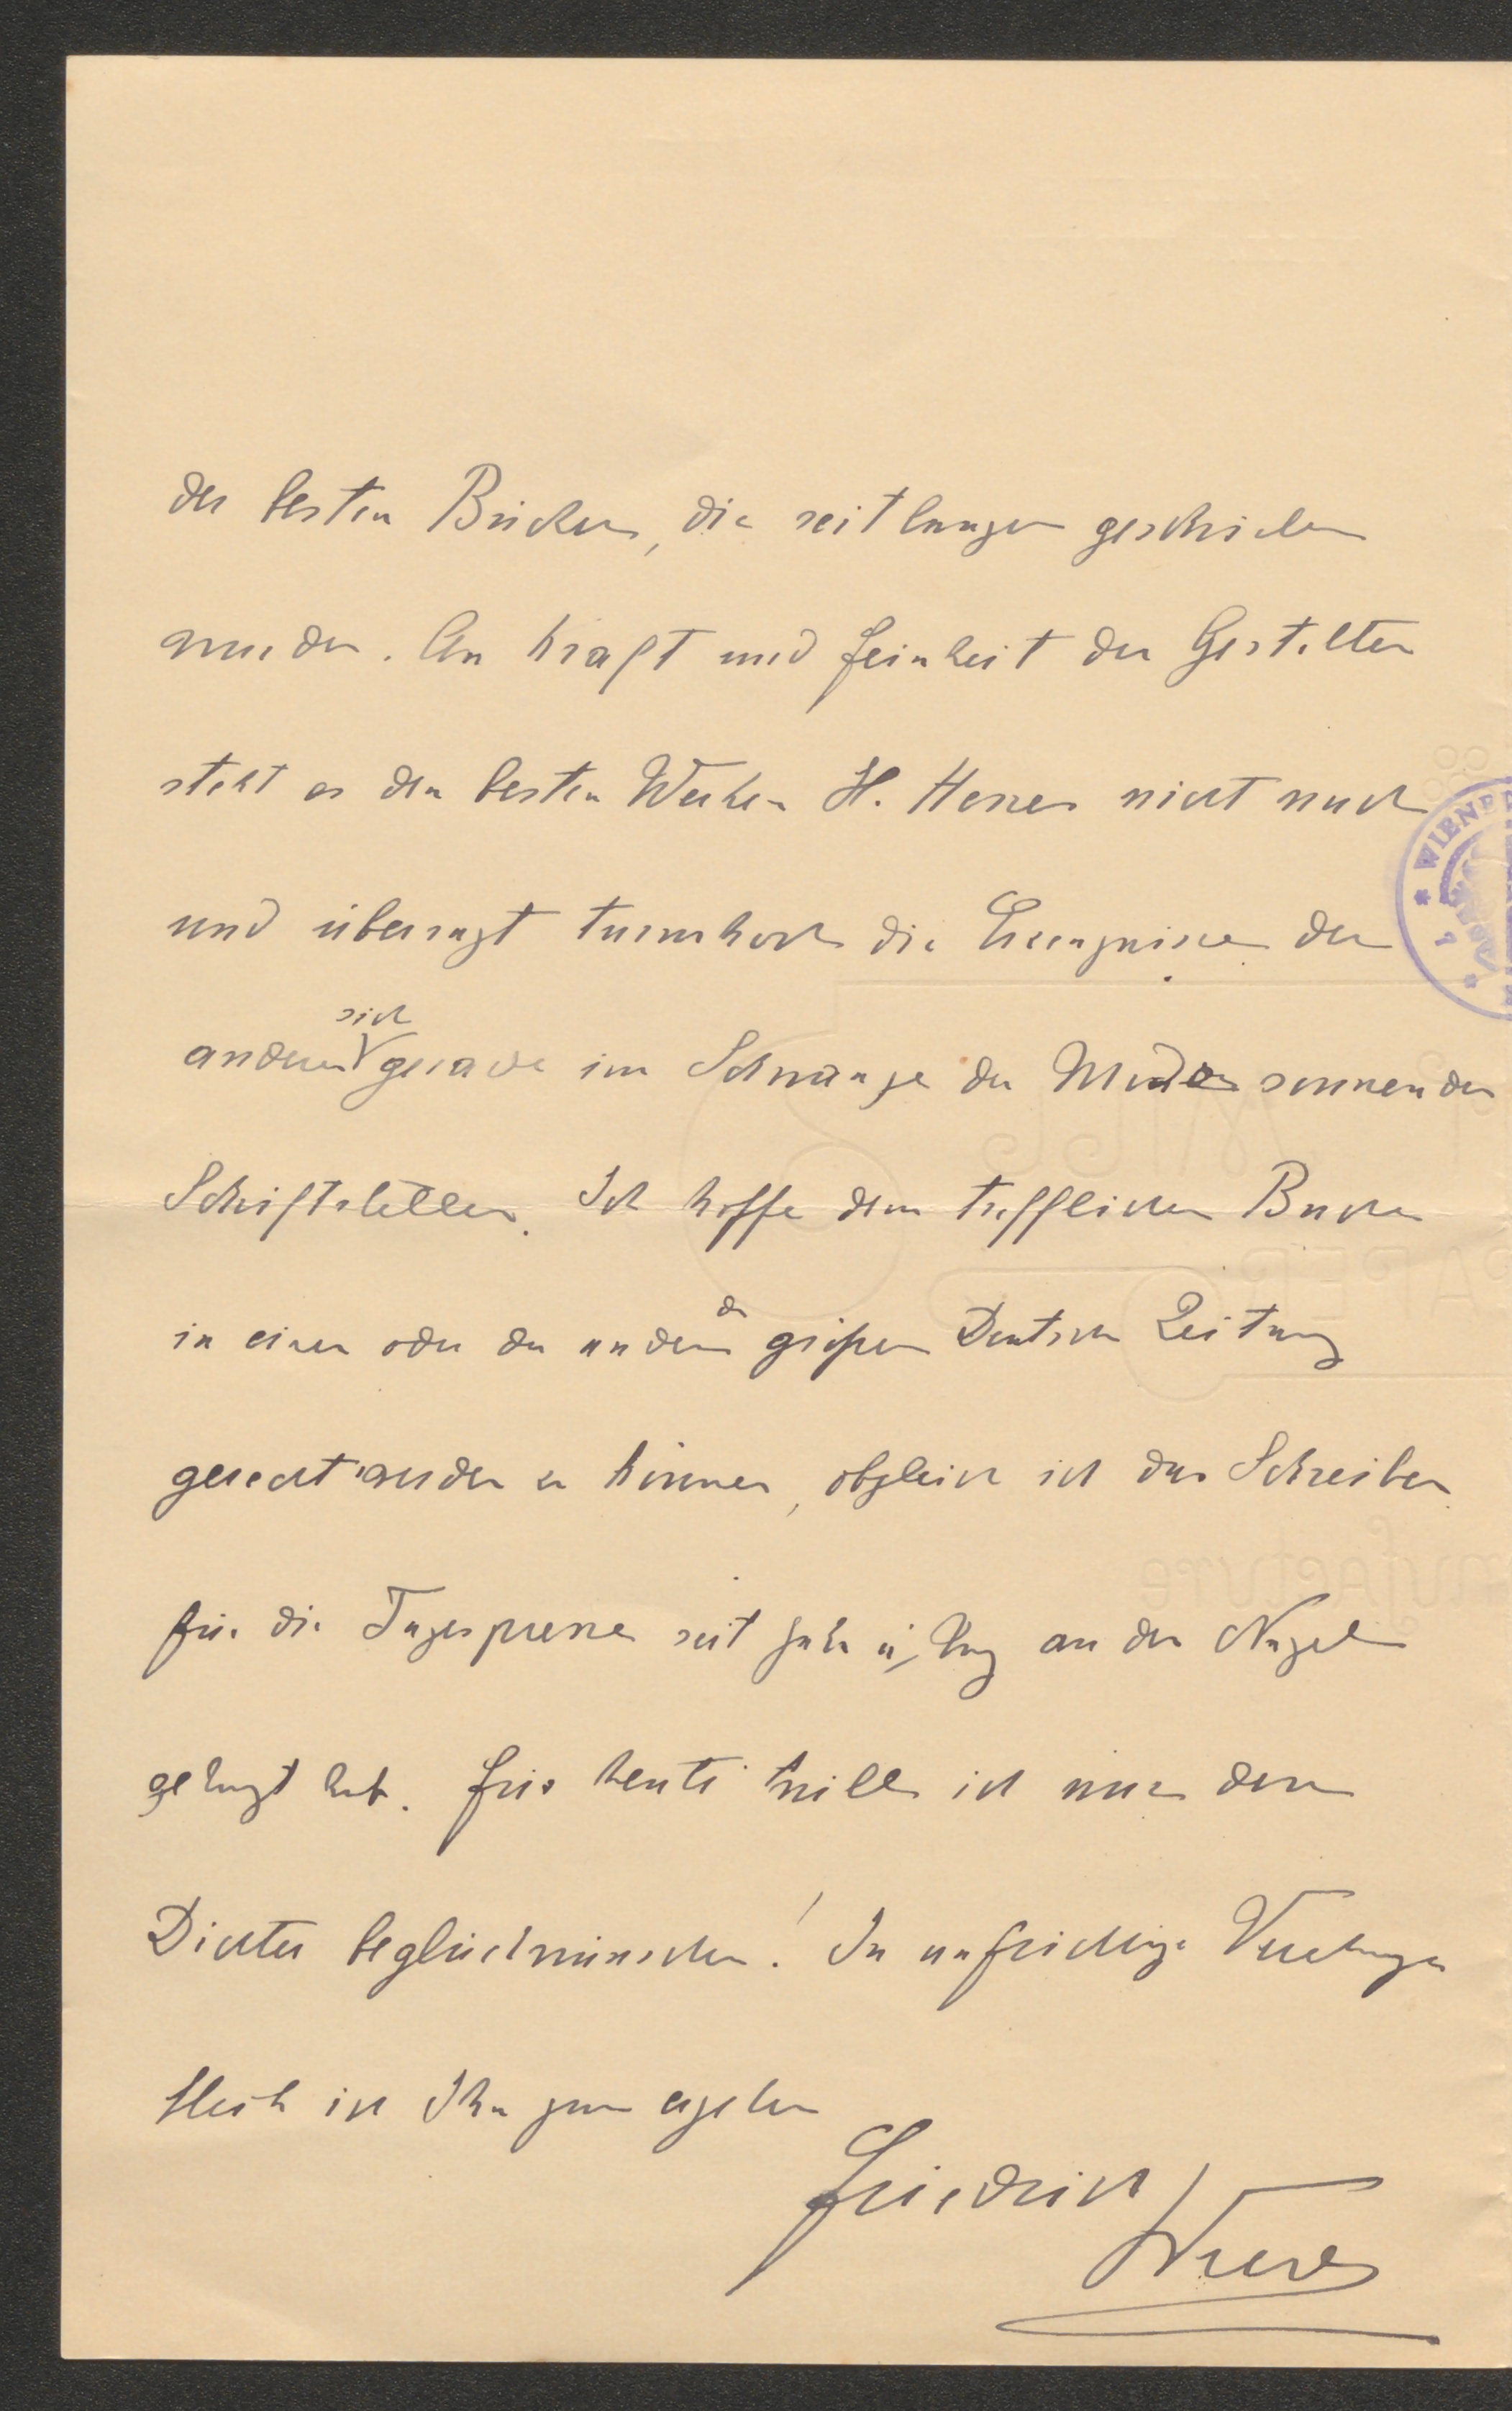 der besten Bücher, die seit langem geschrieben
wurden. An Kraft und Feinheit der Gestalten
steht es den besten Werken H. Hesses nicht nach
und überragt turmhoch die Erzeugnisse der
anderen sich gerade im Schwange der Mode sonnenden
Schriftsteller. Ich hoffe dem trefflichen Buche
in einer oder der anderen der großen Deutschen Zeitung
gerecht werden zu können, obgleich ich das Schreiben
für die Tagespresse seit Jahr u. Tag an den Nagel
gehängt habe. Für heute will ich nur dem
Dichter beglückwünschen! In aufrichtiger Verehrung
bleibe ich Ihr ganz ergebener
Friedrich
WIENER